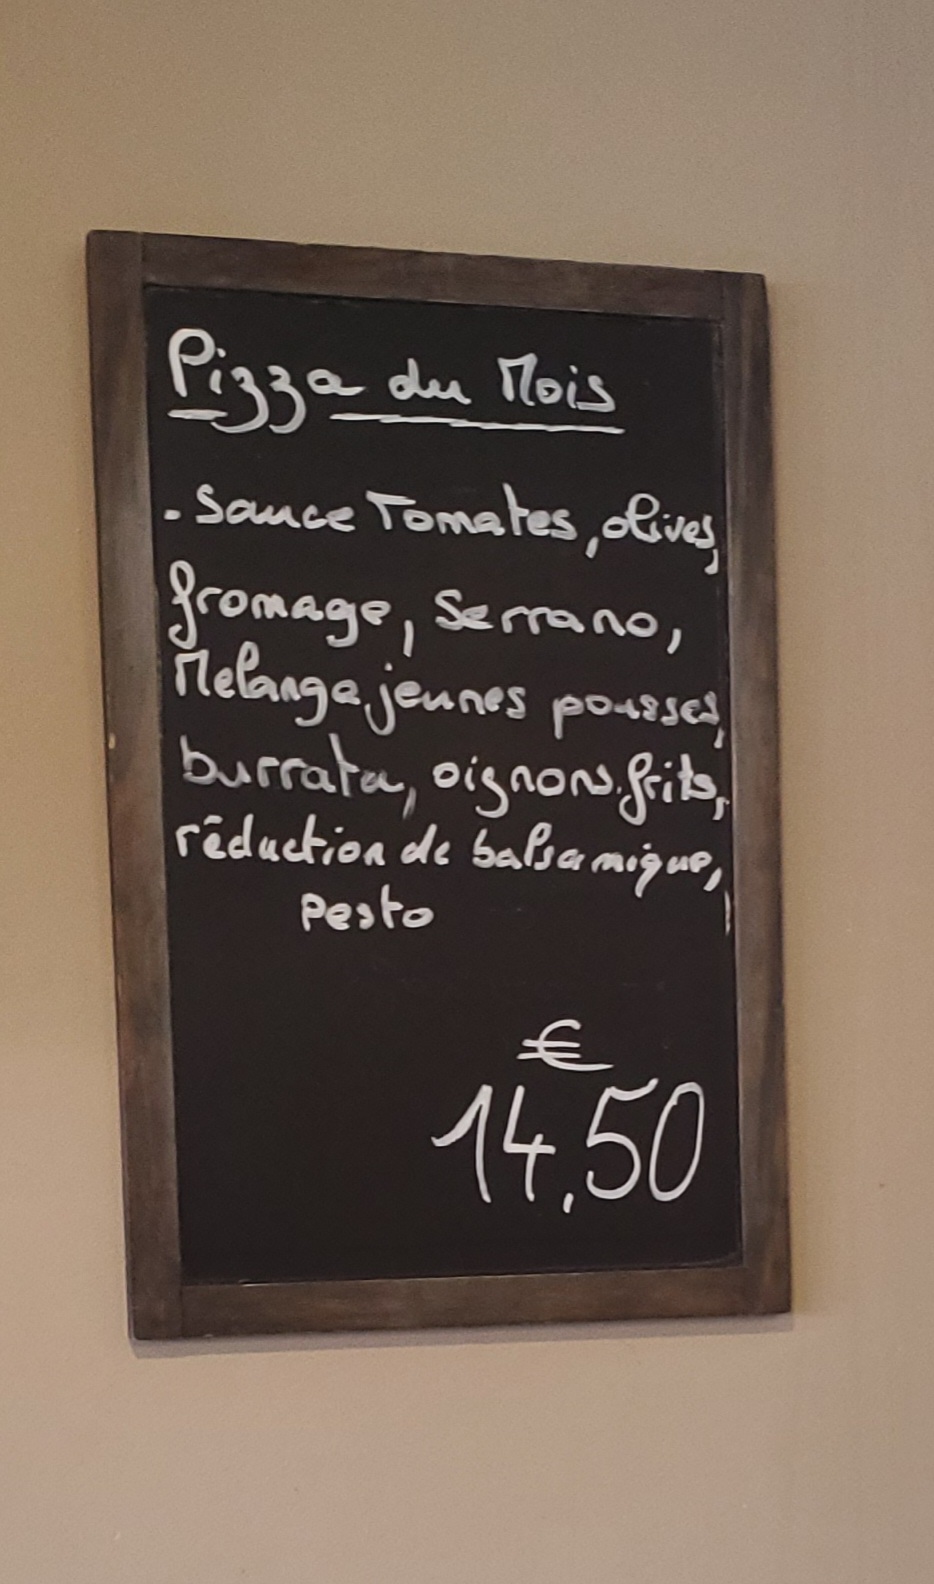 Pizza du Mois
- Sauce Tomates, olives,
fromage, Serrano,
Melange jeunes pousses,
burrata, oignons frits,
réduction de balsamique,
pesto
€
14,50